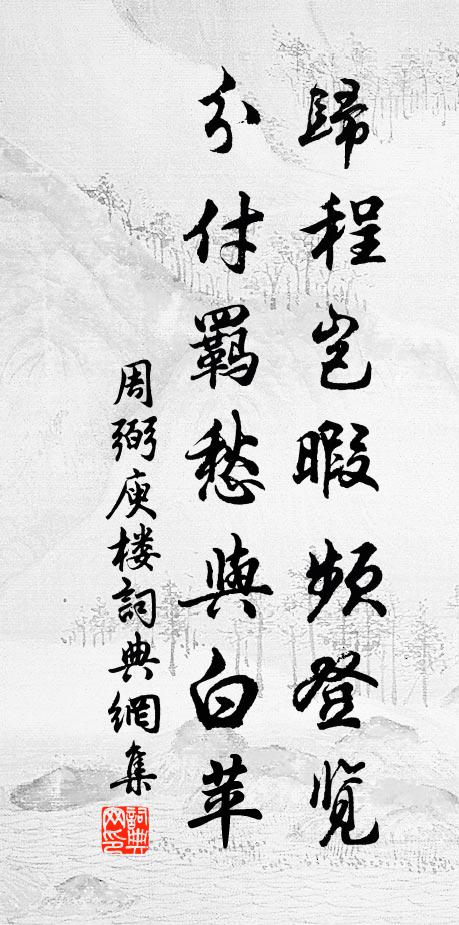 歸程豈暇頻登覽
分付羈愁與白苹
周弼庾楼詞典網集
詞典网印